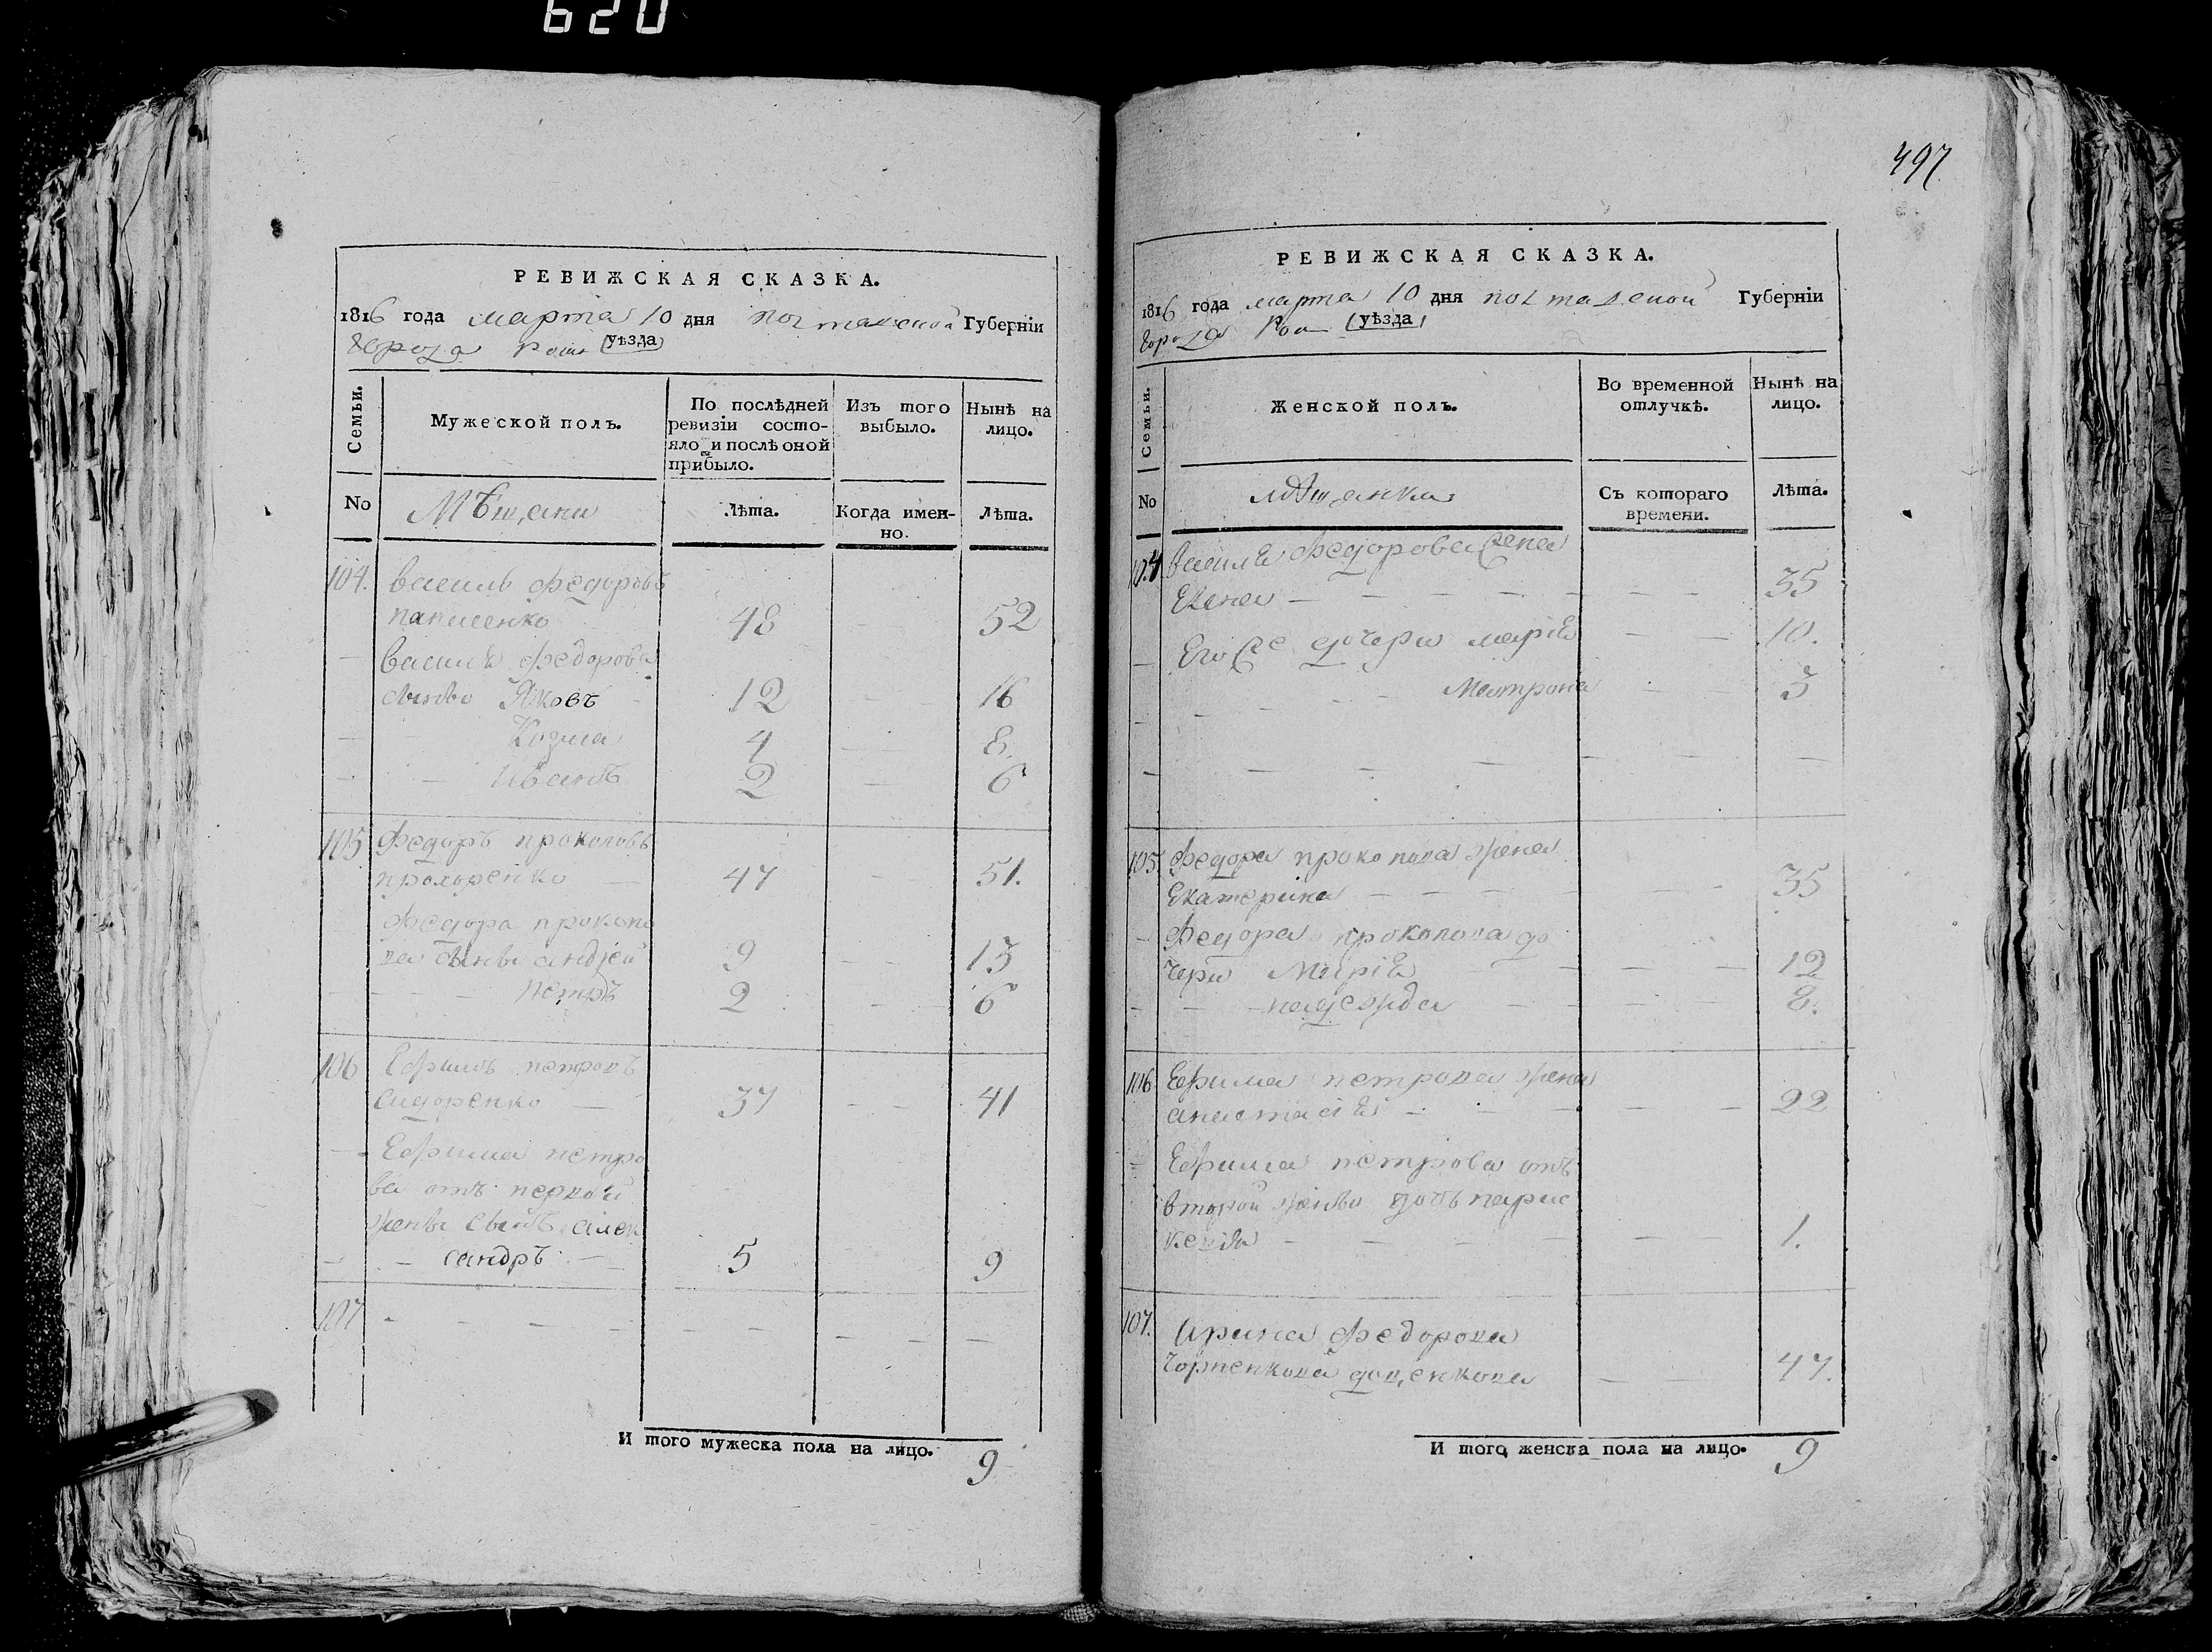 620
РЕВИЖСКАЯ СКАЗКА.
1816 года марта 10 дня полтавской Губерніи
Города Ром уѣзда
Семьи.
Мужеской полъ.
По послѣдней
ревизіи состо-
яло и послѣ оной
прибыло.
Изъ того
выбыло.
Нынѣ на
лицо.
No
Мѣщани
Лѣта.
Когда имен-
но.
Лѣта.
104. василь федоровъ
48 52
василя федорова
сынъи Яковъ 12 16
Козма 4 8.
Иванъ 2 6
105 Федоръ прокоповъ
прохоренко 47 51.
Федора прокопо
ва сынъи андрей 9 13
петръ 2 6
106 Ефимъ петровъ
сидоренко 37 41
Ефима петро
ва отъ первой
жены сынъ алек
сандръ 5 9
107
И того мужеска пола на лицо. 9
497
РЕВИЖСКАЯ СКАЗКА.
1816 года марта 10 дня полтавской Губерніи
Города Ром уѣзда
Семьи.
Женской полъ.
Во временной
отлучкѣ.
Нынѣ на
лицо.
No
мѣщанки
Съ котораго
времени.
Лѣта.
104 василя федорова жена
Елена 35
Его же дочери марія 10.
Матрона 3
105 Федора прокопова жена
Екатерина 35
Федора прокопова до
чери Марія 12
надежда 8.
106 Ефима петрова жена
анастасія 22
Ефима петрова отъ
второй жены дочь парас
кевія 1.
107. Ирина федорова
доценкова 47.
И того женска пола на лицо. 9